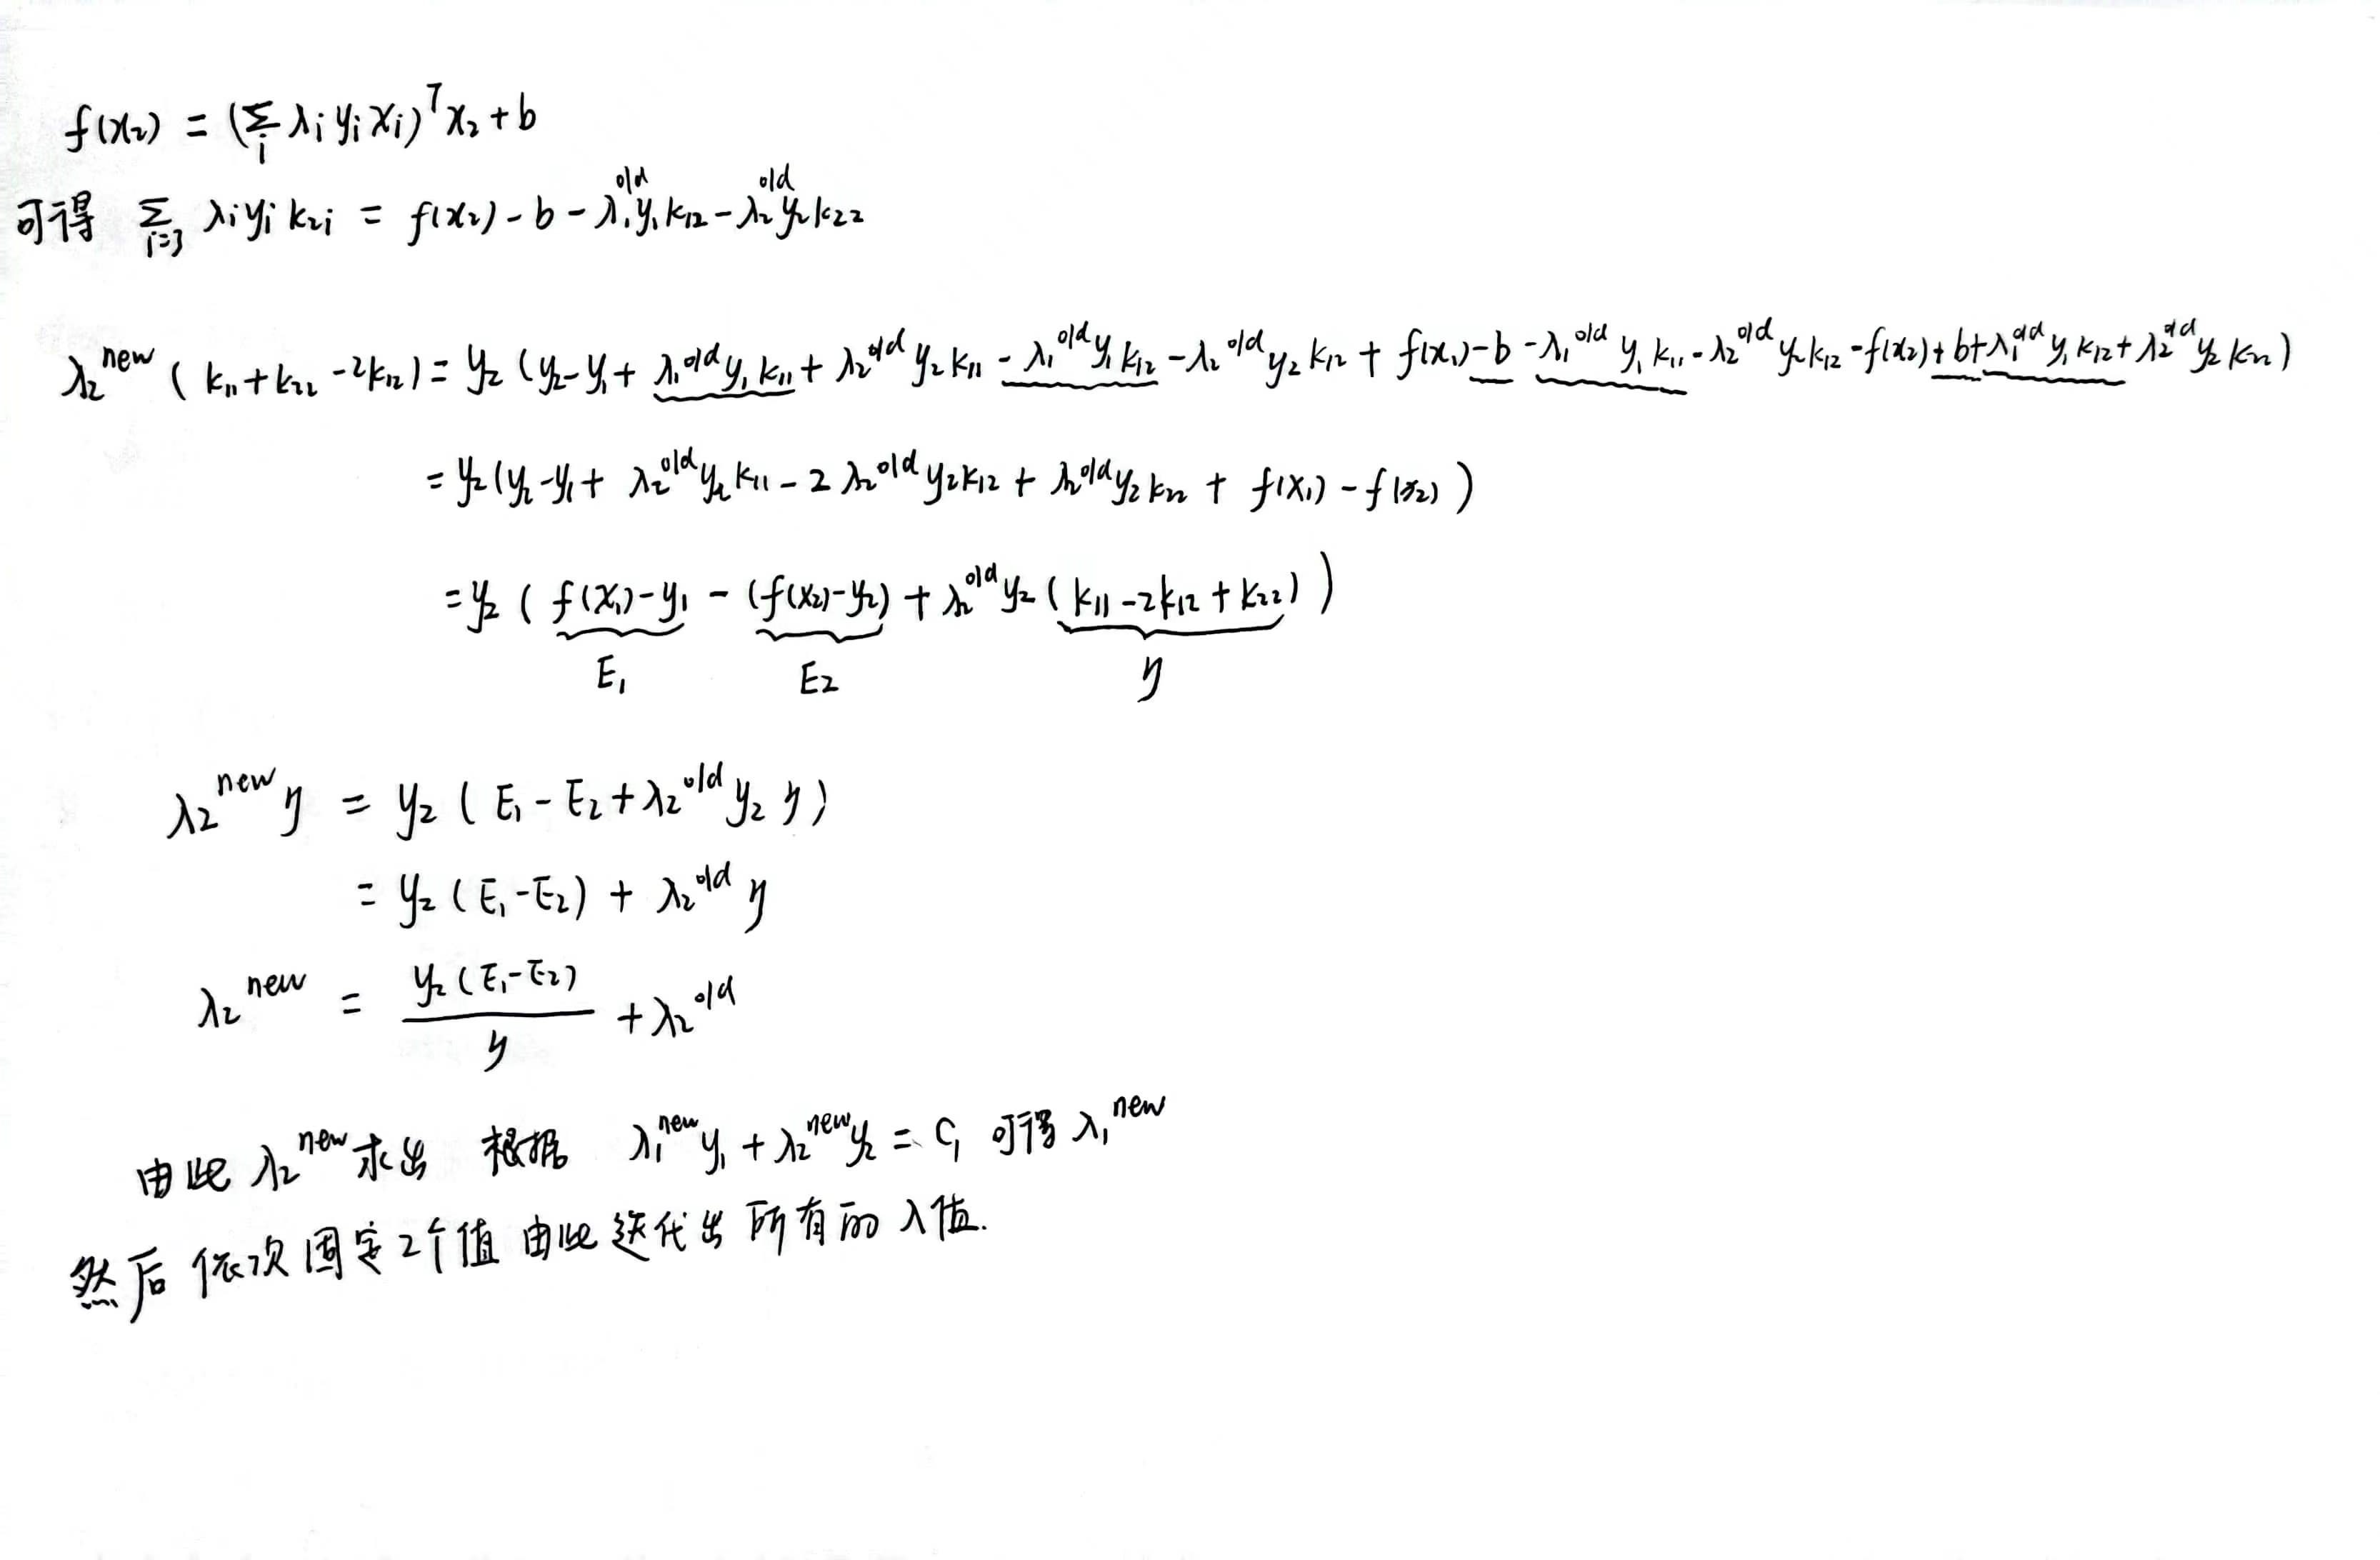 f(x₂) = (∑ᵢ λᵢ yᵢ xᵢ)ᵀ x₂ + b
可得 ∑ᵢ₌₃ λᵢ yᵢ k₂ᵢ = f(x₂) - b - λ₁ᵒˡᵈ y₁ k₁₂ - λ₂ᵒˡᵈ y₂ k₂₂
λ₂ⁿᵉʷ ( k₁₁ + k₂₂ - 2k₁₂ ) = y₂ ( y₂ - y₁ + λ₁ᵒˡᵈ y₁ k₁₁ + λ₂ᵒˡᵈ y₂ k₁₁ - λ₁ᵒˡᵈ y₁ k₁₂ - λ₂ᵒˡᵈ y₂ k₁₂ + f(x₁) - b - λ₁ᵒˡᵈ y₁ k₁₁ - λ₂ᵒˡᵈ y₂ k₁₂ - f(x₂) + b + λ₁ᵒˡᵈ y₁ k₁₂ + λ₂ᵒˡᵈ y₂ k₂₂ )
= y₂ ( y₂ - y₁ + λ₂ᵒˡᵈ y₂ k₁₁ - 2 λ₂ᵒˡᵈ y₂ k₁₂ + λ₂ᵒˡᵈ y₂ k₂₂ + f(x₁) - f(x₂) )
= y₂ ( f(x₁) - y₁ - (f(x₂) - y₂) + λ₂ᵒˡᵈ y₂ ( k₁₁ - 2k₁₂ + k₂₂ ) )
E₁ E₂ η
λ₂ⁿᵉʷ η = y₂ ( E₁ - E₂ + λ₂ᵒˡᵈ y₂ η )
= y₂ ( E₁ - E₂ ) + λ₂ᵒˡᵈ η
λ₂ⁿᵉʷ = y₂ ( E₁ - E₂ ) / η + λ₂ᵒˡᵈ
由此 λ₂ⁿᵉʷ 求出 根据 λ₁ⁿᵉʷ y₁ + λ₂ⁿᵉʷ y₂ = C, 可得 λ₁ⁿᵉʷ
然后 依次 固定 2个值 由此 迭代出 所有的 λ值.